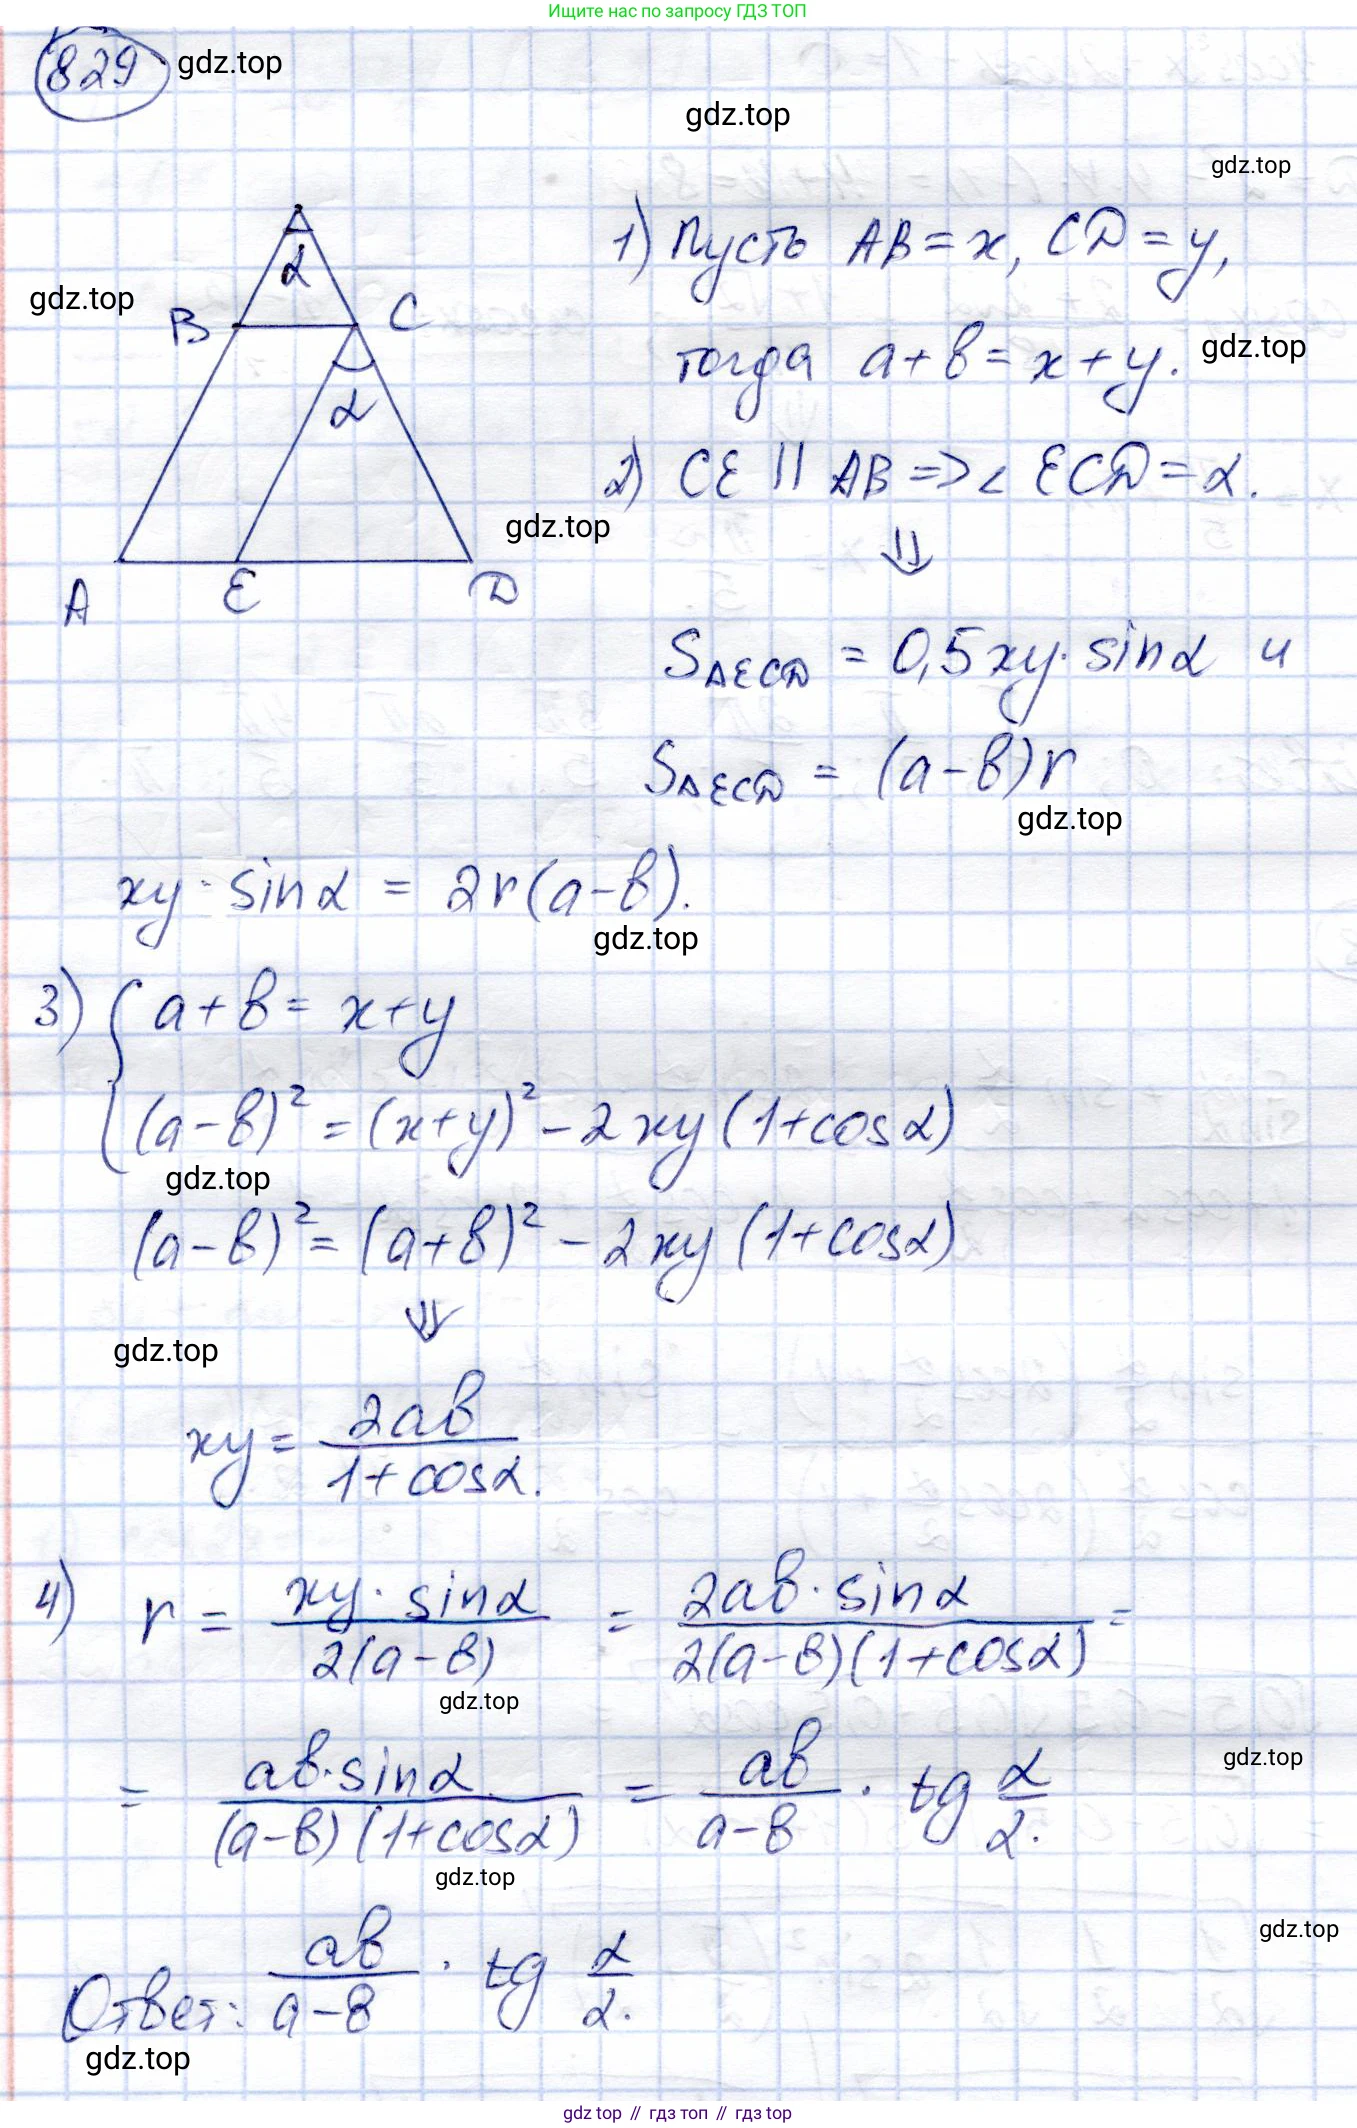 Ищите нас по запросу ГДЗ ТОП
829 gdz.top
gdz.top
gdz.top
1) Пусть AB = x, CD = y,
gdz.top
α
B C
тогда a + b = x + y. gdz.top
α
2) CE || AB => ∠ ECD = α.
gdz.top
⇓
A E D
S△ECD = 0,5xy · sinα и
S△ECD = (a-b)r
gdz.top
xy · sinα = 2r(a-b).
gdz.top
3) { a + b = x + y
(a-b)² = (x+y)² - 2xy(1+cosα)
gdz.top
(a-b)² = (a+b)² - 2xy(1+cosα)
⇓
gdz.top
xy = 2ab / 1+cosα.
4) r = xy · sinα / 2(a-b) = 2ab · sinα / 2(a-b)(1+cosα) =
gdz.top
= ab·sinα / (a-b)(1+cosα) = ab / a-b · tg α/2.
gdz.top
gdz.top
gdz.top
Ответ: ab / a-b · tg α/2.
gdz.top
gdz top // гдз топ // gdz top